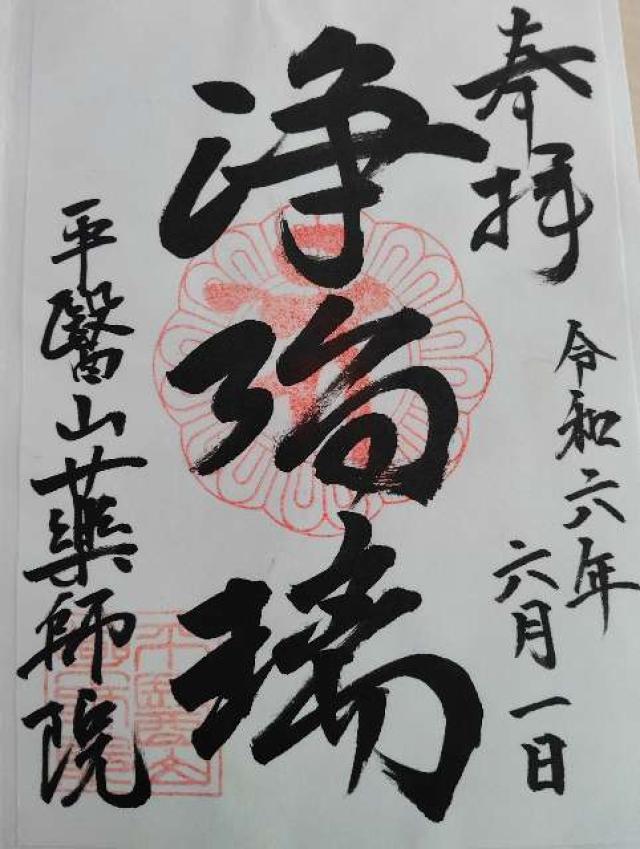 奉拝
令和六年
六月一日
浄瑠璃
平醫山薬師院